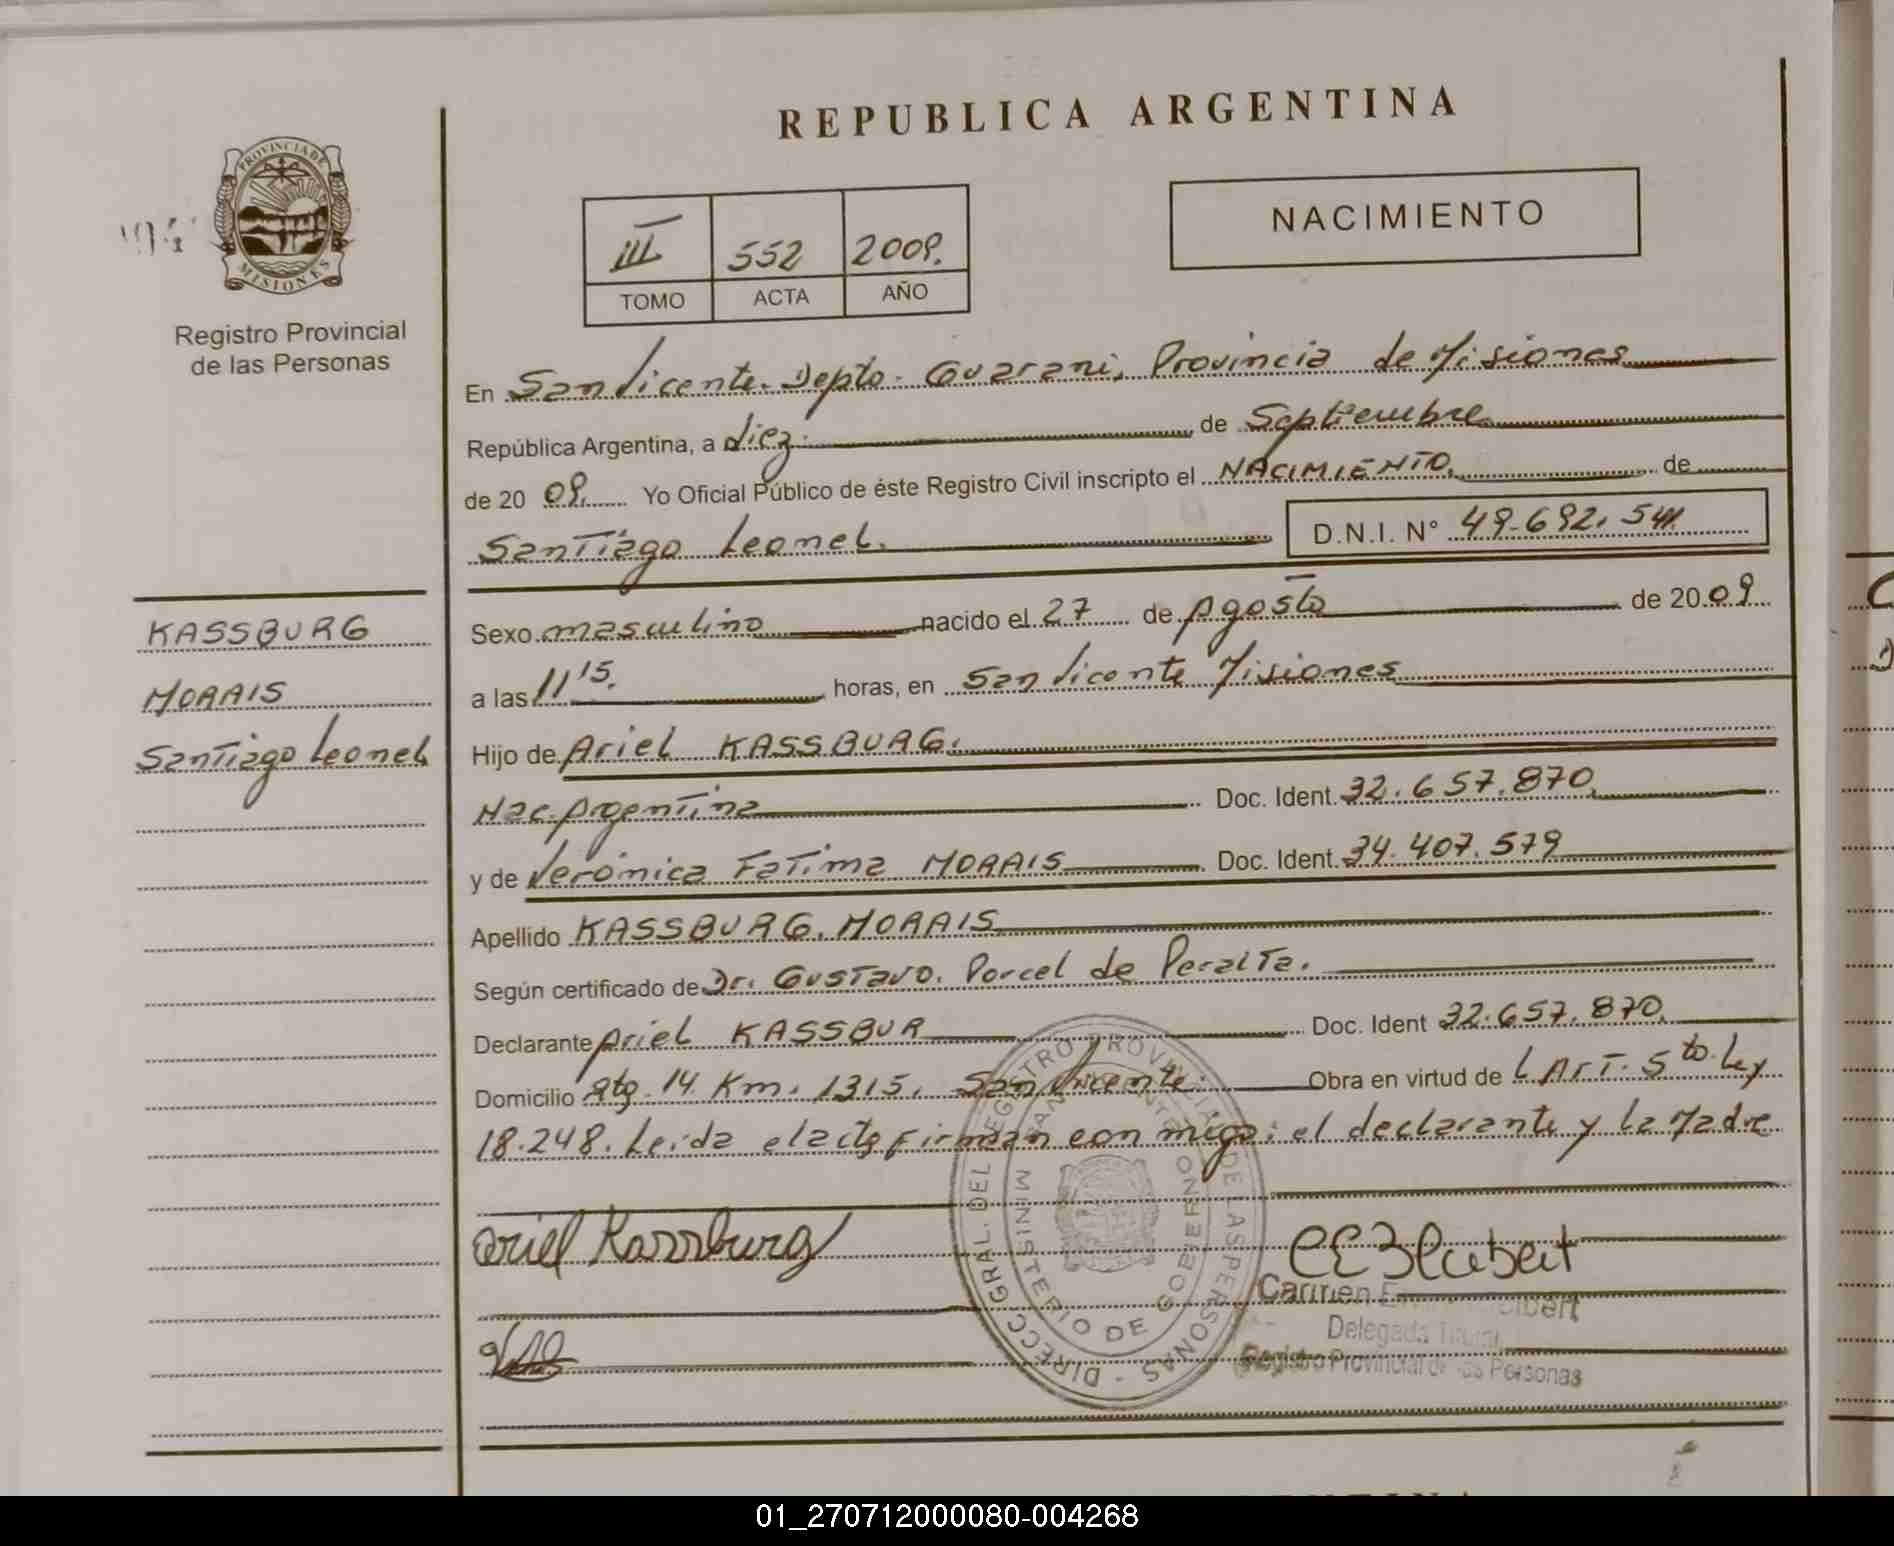 REPUBLICA ARGENTINA
PROVINCIA DE
MISIONES
Registro Provincial
de las Personas
III 552 2009.
TOMO ACTA AÑO
NACIMIENTO
En San Vicente. Depto. Guarani, Provincia de Misiones
República Argentina, a diez. de Septiembre
de 20 09. Yo Oficial Público de éste Registro Civil inscripto el NACIMIENTO. de
Santiago Leonel. D.N.I. N° 49.692.541
KASSBURG
MORAIS
Santiago Leonel
Sexo masculino nacido el 27 de Agosto de 2009
a las 11 15. horas, en San Vicente Misiones
Hijo de Ariel KASSBURG.
Nac. Argentina Doc. Ident. 32.657.870
y de Verónica Fatima MORAIS Doc. Ident. 34.407.579
Apellido KASSBURG. MORAIS
Según certificado de Dr. Gustavo. Porcel de Peralta.
Declarante Ariel KASSBUR Doc. Ident 32.657.870
Domicilio Rta. 14 Km. 1315, San Vicente. Obra en virtud de L Art. 5to. Ley
18.248. Leída el acta firman con migo: el declarante y la Madre
Ariel Kassburg
Carmen
Delegada Titular
Registro Provincial de las Personas
DIRECC. GRAL. DEL REGISTRO PROVINCIAL DE LAS PERSONAS
MINISTERIO DE GOBIERNO
SAN VICENTE
01_270712000080-004268